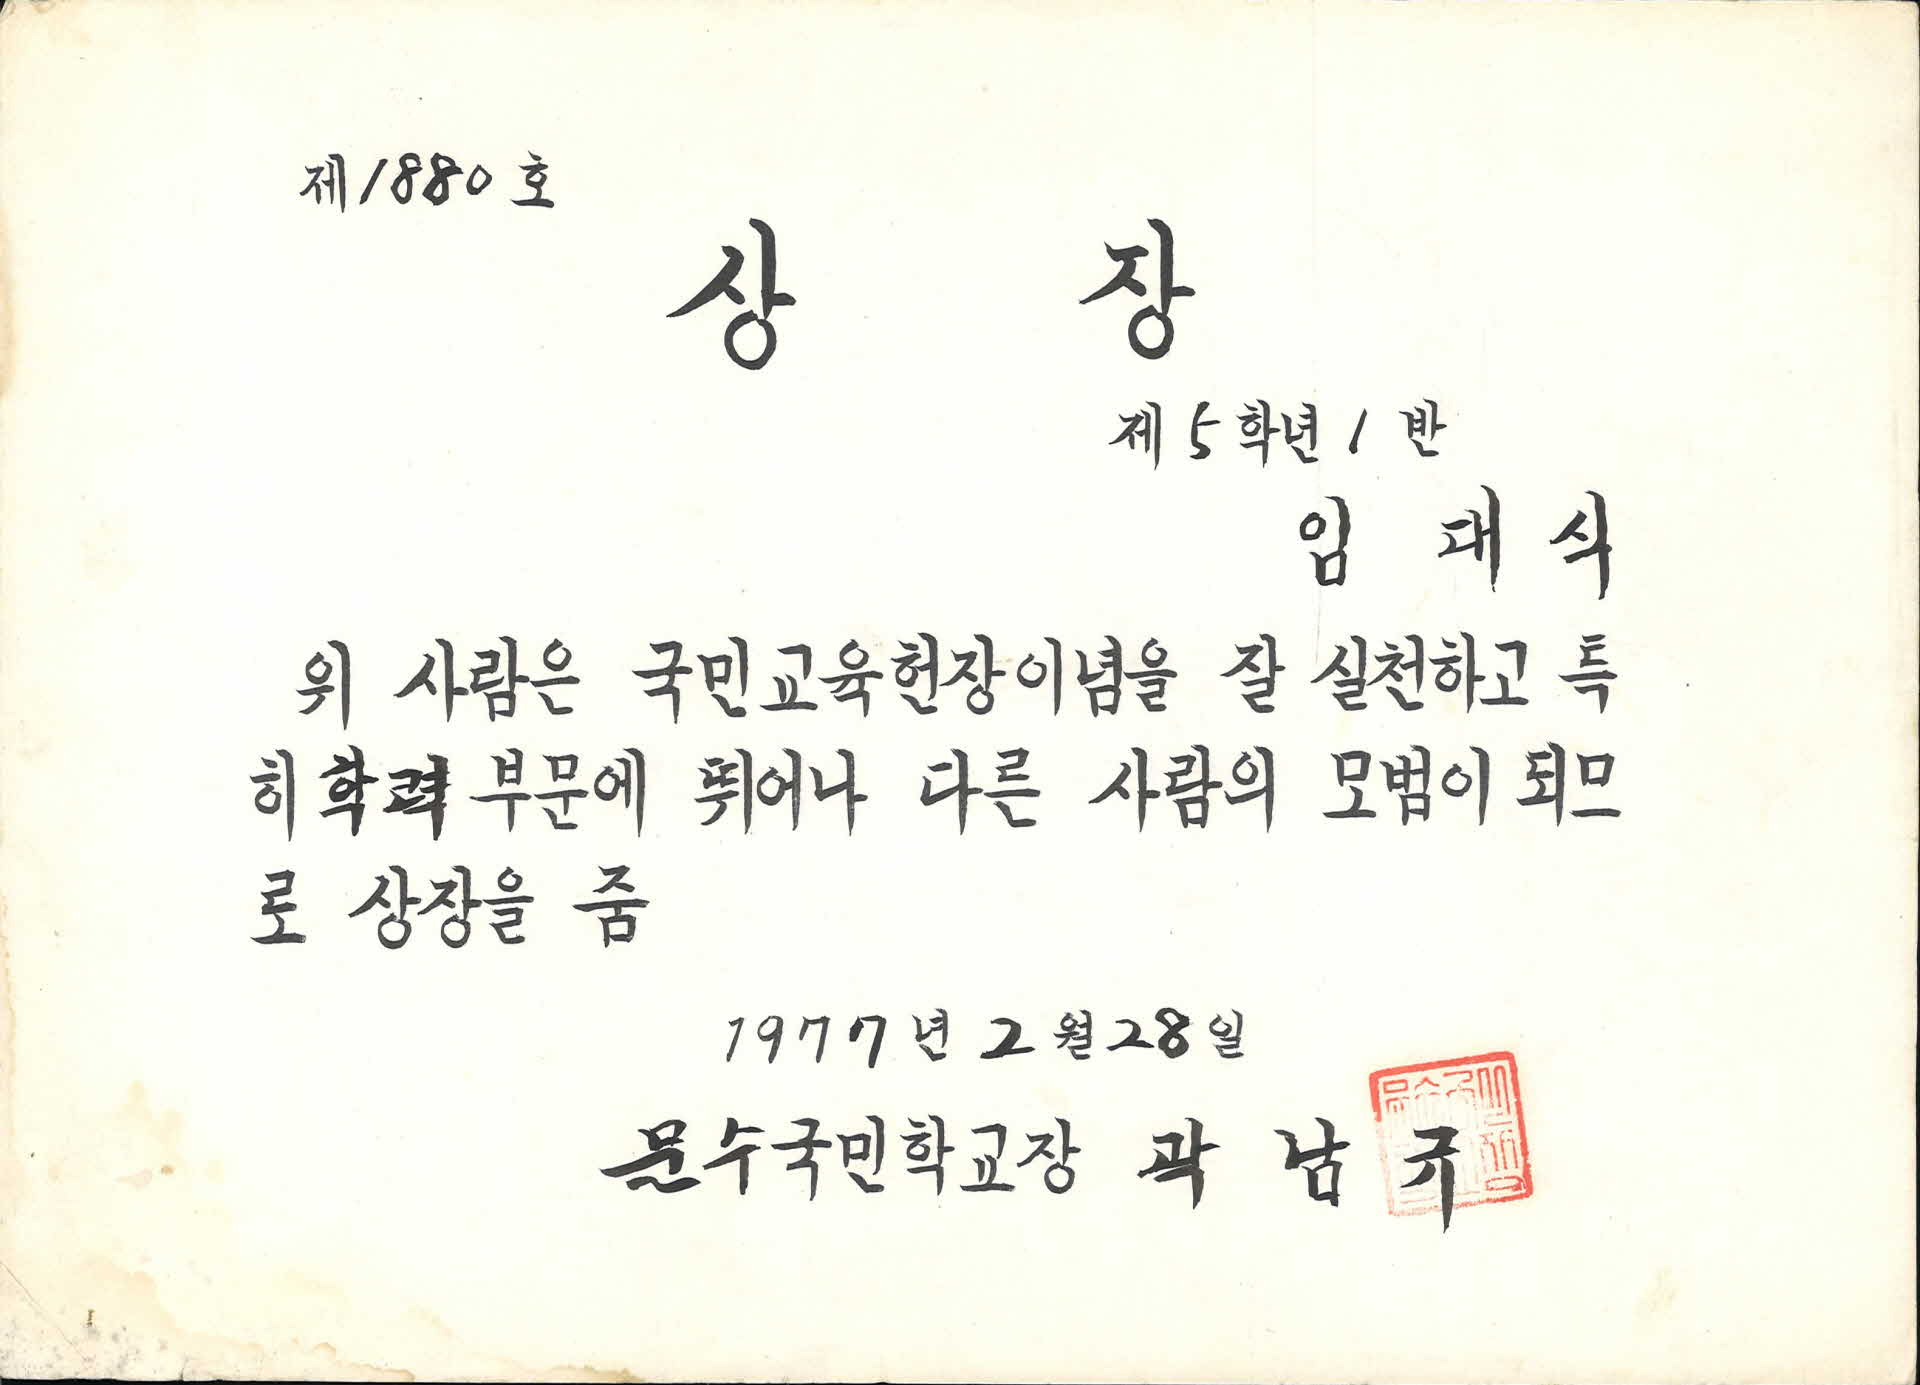 제1880호
상 장
제5학년1반
임 대 식
위 사람은 국민교육헌장이념을 잘 실천하고 특
히 학력 부문에 뛰어나 다른 사람의 모범이 되므
로 상장을 줌
1977년 2월28일
문수국민학교장 곽 남 규